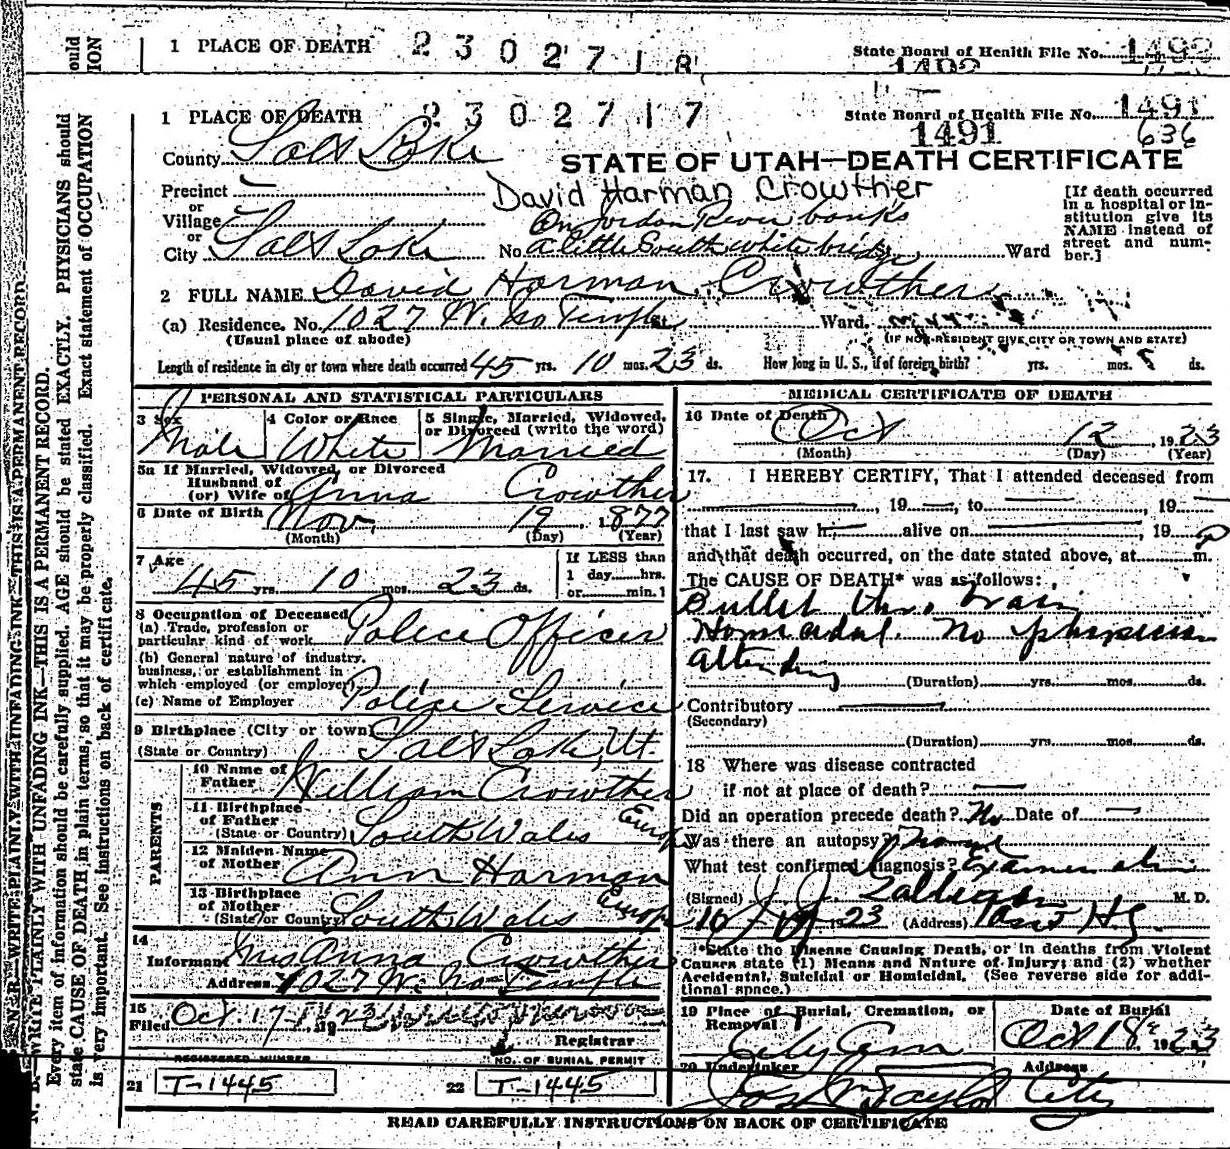 ould
ION
1 PLACE OF DEATH 2 3 0 2 7 1 8
State Board of Health File No. 1492
1492
1 PLACE OF DEATH 2 3 0 2 7 1 7
State Board of Health File No. 1491
1491 636
County Salt Lake
STATE OF UTAH—DEATH CERTIFICATE
Precinct
or
Village
or
City Salt Lake
David Harman Crowther
On Jordan River banks
No. a little South white bridge Ward
[If death occurred
in a hospital or in-
stitution give its
NAME instead of
street and num-
ber.]
2 FULL NAME David Harman Crowther
(a) Residence. No. 1027 W. No Temple St. Ward.
(Usual place of abode)
(IF NON-RESIDENT GIVE CITY OR TOWN AND STATE)
Length of residence in city or town where death occurred 45 yrs. 10 mos. 23 ds. How long in U. S., if of foreign birth? yrs. mos. ds.
PERSONAL AND STATISTICAL PARTICULARS
3 Sex
Male
4 Color or Race
White
5 Single, Married, Widowed,
or Divorced (write the word)
Married
5a If Married, Widowed, or Divorced
Husband of
(or) Wife of Anna Crowther
6 Date of Birth Nov. 19, 1877
(Month) (Day) (Year)
7 Age
45 yrs. 10 mos. 23 ds.
If LESS than
1 day......hrs.
or......min.1
8 Occupation of Deceased
(a) Trade, profession or
particular kind of work Police Officer
(b) General nature of industry,
business, or establishment in
which employed (or employer)
(c) Name of Employer Police Service
9 Birthplace (City or town)
(State or Country) Salt Lake, Ut.
PARENTS
10 Name of
Father William Crowther
11 Birthplace
of Father
(State or Country) South Wales Europe
12 Maiden Name
of Mother Ann Harman
13 Birthplace
of Mother
(State or Country) South Wales Europe
14
Informant Mrs Anna Crowther
Address 1027 W. No Temple
15
Filed Oct 17 1923
Registrar
REGISTERED NUMBER
21 T-1445
NO. OF BURIAL PERMIT
22 T-1445
MEDICAL CERTIFICATE OF DEATH
16 Date of Death
Oct 12, 1923
(Month) (Day) (Year)
17. I HEREBY CERTIFY, That I attended deceased from
, 19 , to , 19
that I last saw h alive on , 19
and that death occurred, on the date stated above, at P m.
The CAUSE OF DEATH* was as follows:
Bullet thro. brain
Homicidal. No physician
attending
(Duration) yrs. mos. ds.
Contributory
(Secondary)
(Duration) yrs. mos. ds.
18 Where was disease contracted
if not at place of death?
Did an operation precede death? No Date of
Was there an autopsy?
What test confirmed diagnosis? Examination
(Signed) M. D.
10/ 1923 (Address)
*State the Disease Causing Death, or in deaths from Violent
Causes state (1) Means and Nature of Injury; and (2) whether
Accidental, Suicidal or Homicidal. (See reverse side for addi-
tional space.)
19 Place of Burial, Cremation, or
Removal
City Cem
Date of Burial
Oct 18 1923
20 Undertaker
Jos Wm Taylor
Address
City
READ CAREFULLY INSTRUCTIONS ON BACK OF CERTIFICATE
N. B.—WRITE PLAINLY WITH UNFADING INK—THIS IS A PERMANENT RECORD.
Every item of information should be carefully supplied. AGE should be stated EXACTLY. PHYSICIANS should
state CAUSE OF DEATH in plain terms, so that it may be properly classified. Exact statement of OCCUPATION
is very important. See instructions on back of certificate.
N. B. WRITE PLAINLY WITH UNFADING INK—THIS IS A PERMANENT RECORD